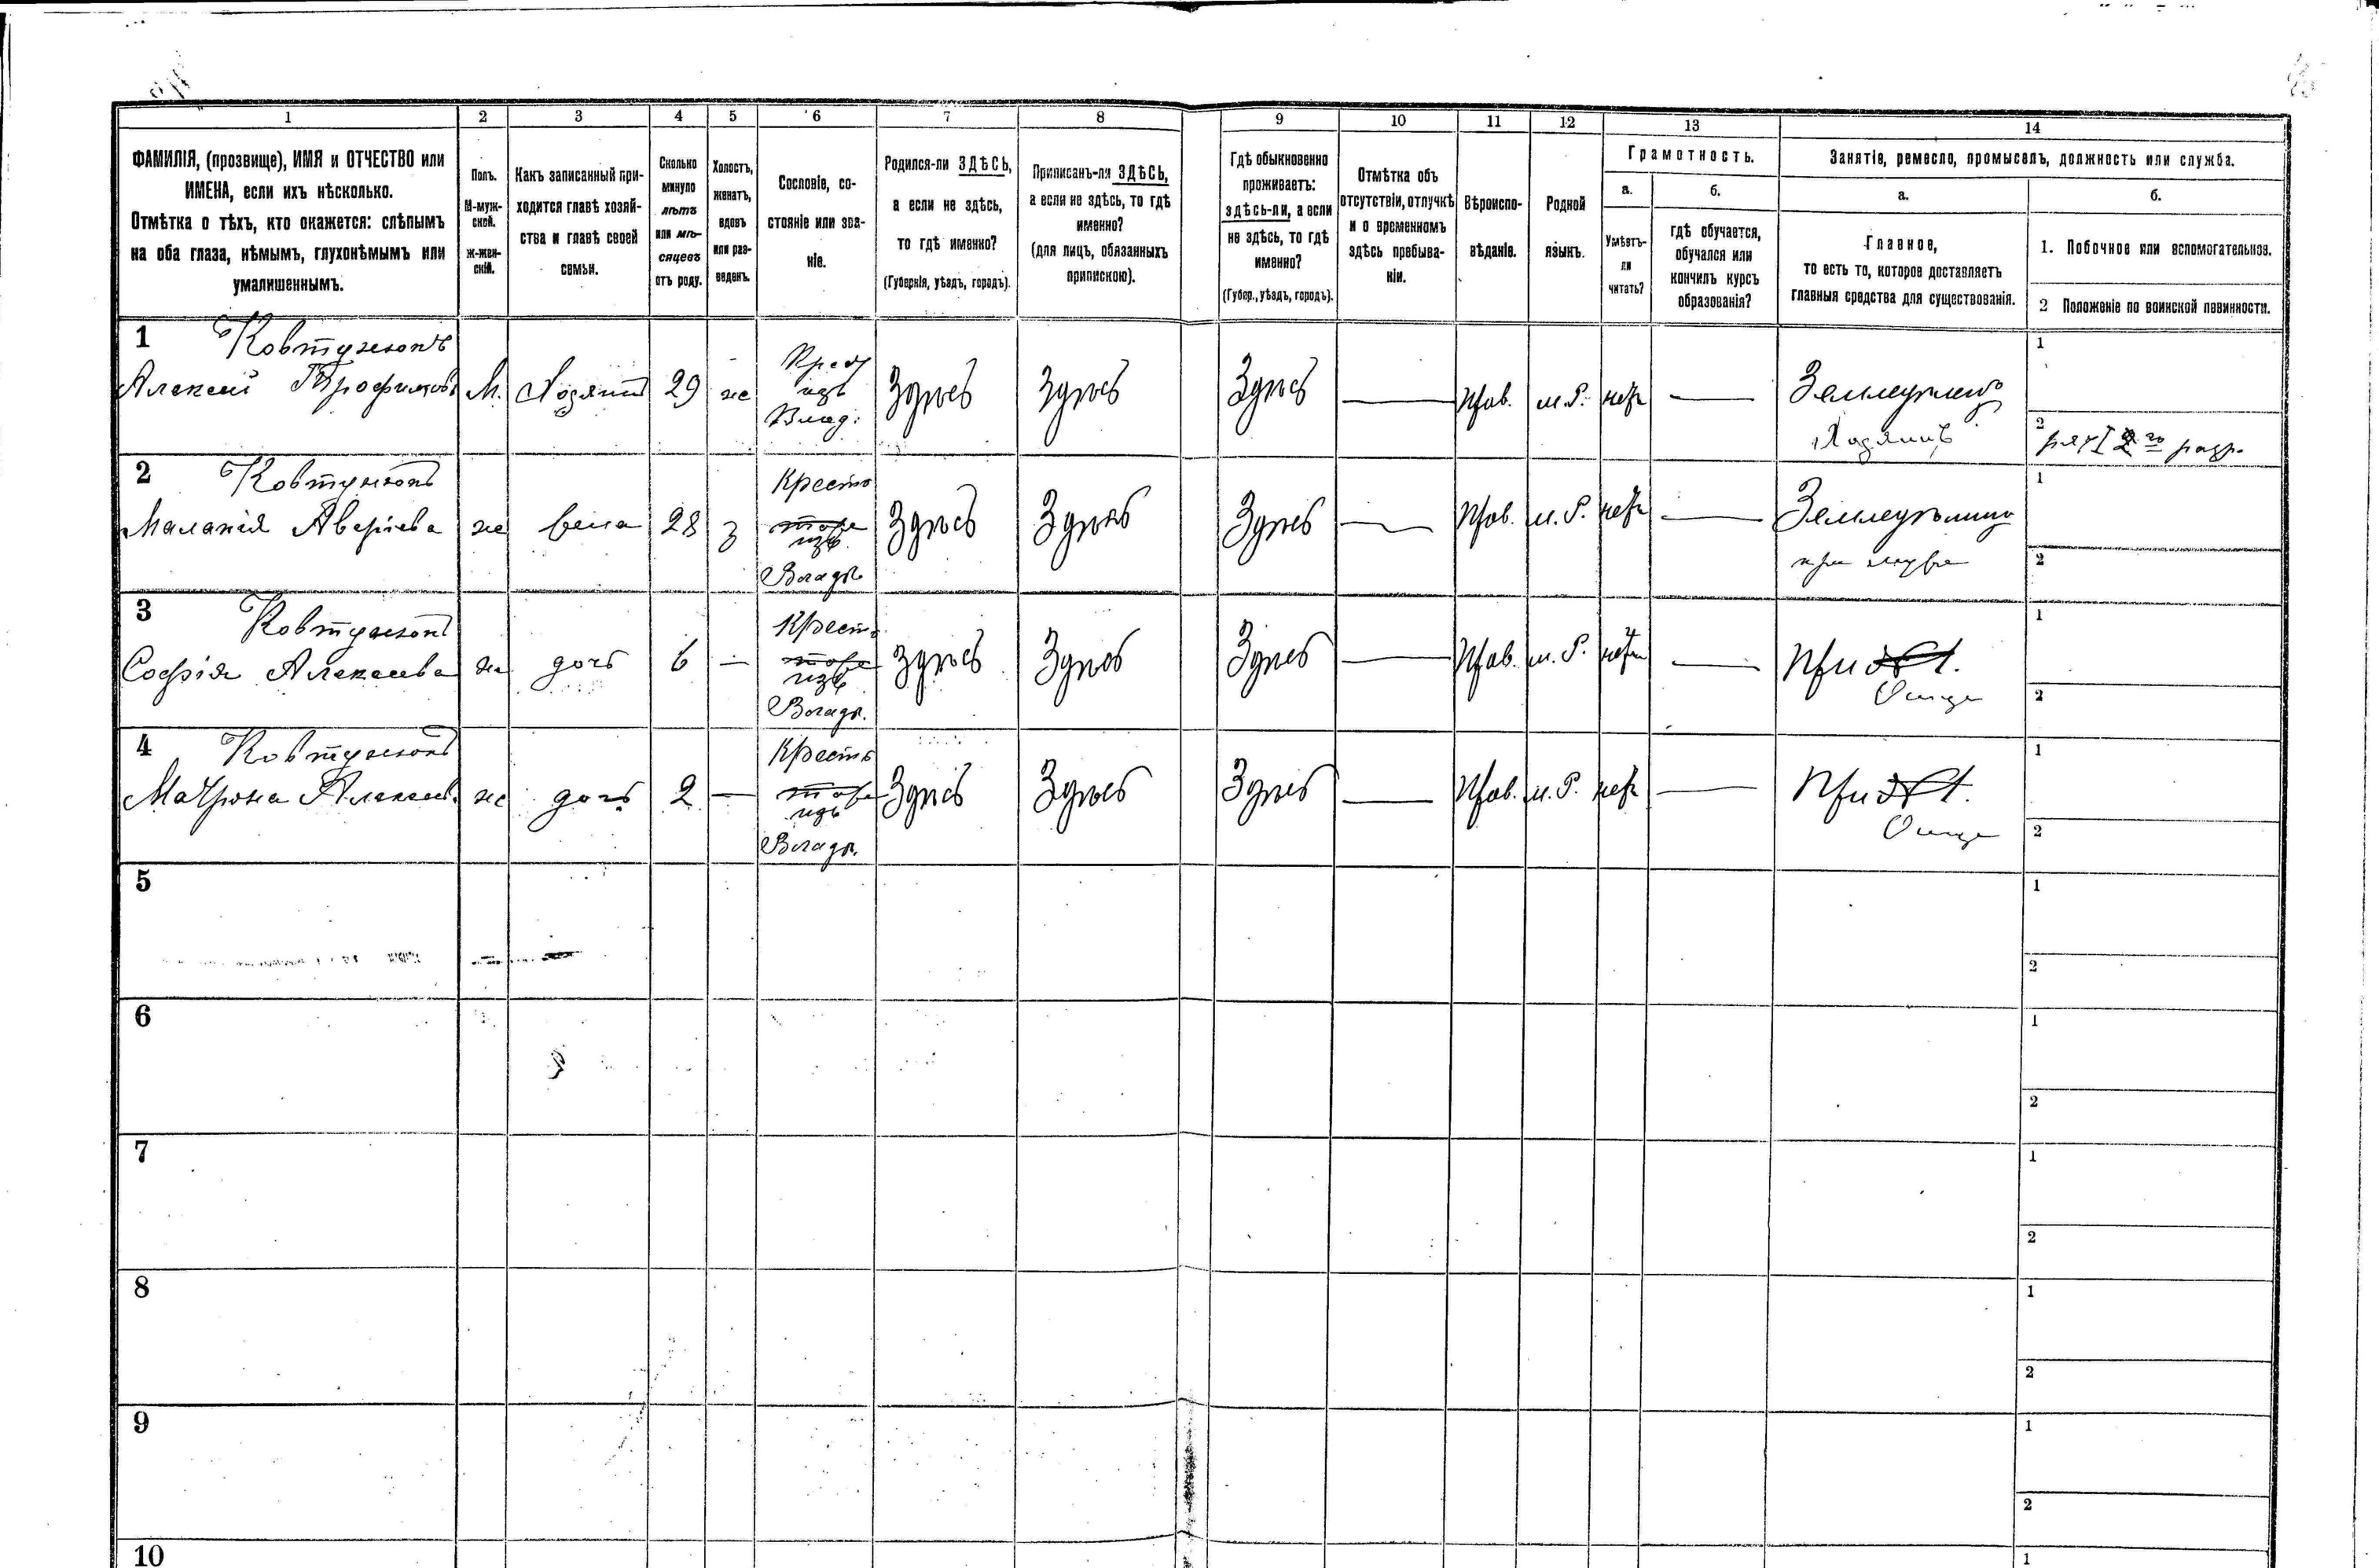 1 2 3 4 5 6 7 8 9 10 11 12 13 14
ФАМИЛІЯ, (прозвище), ИМЯ и ОТЧЕСТВО или
ИМЕНА, если ихъ нѣсколько.
Отмѣтка о тѣхъ, кто окажется: слѣпымъ
на оба глаза, нѣмымъ, глухонѣмымъ или
умалишеннымъ.
Полъ.
М-муж-
ской.
ж-жен-
скій.
Какъ записанный при-
ходится главѣ хозяй-
ства и главѣ своей
семьи.
Сколько
минуло
лѣтъ
или мѣ-
сяцевъ
отъ роду.
Холостъ,
женатъ,
вдовъ
или раз-
веденъ.
Сословіе, со-
стояніе или зва-
ніе.
Родился-ли ЗДѢСЬ,
а если не здѣсь,
то гдѣ именно?
(Губернія, уѣздъ, городъ).
Приписанъ-ли ЗДѢСЬ,
а если не здѣсь, то гдѣ
именно?
(для лицъ, обязанныхъ
припискою).
Гдѣ обыкновенно
проживаетъ:
здѣсь-ли, а если
не здѣсь, то гдѣ
именно?
(Губер., уѣздъ, городъ).
Отмѣтка объ
отсутствіи, отлучкѣ
и о временномъ
здѣсь пребыва-
ніи.
Вѣроиспо-
вѣданіе.
Родной
языкъ.
Грамотность.
а.
Умѣетъ-
ли
читать?
б.
гдѣ обучается,
обучался или
кончилъ курсъ
образованія?
Занятіе, ремесло, промыселъ, должность или служба.
а.
Главное,
то есть то, которое доставляетъ
главныя средства для существованія.
б.
1. Побочное или вспомогательное.
2 Положеніе по воинской повинности.
1 Ковтунъ
Алексей Трофимовъ М. Хозяинъ 29 же Крест изъ Влад. Здѣсь Здѣсь Здѣсь — Прав. м. Р. нет — Земледелие Хозяинъ
1
2
2 Ковтунъ
Маланія Аверіева же жена 28 з Кресть изъ Владѣ. Здѣсь Здѣсь Здѣсь — Прав. м. Р. нет — Земледелие при муже
1
2
3 Ковтунъ
Софія Алексеева же дочь 6 — Кресть изъ Владѣ. Здѣсь Здѣсь Здѣсь — Прав. м. Р. нет — При Отце
1
2
4 Ковтунъ
Матрона Алексеев. же дочь 2 — Кресть изъ Владѣ. Здѣсь Здѣсь Здѣсь — Прав. м. Р. нет — При Отце
1
2
5
1
2
6
1
2
7
1
2
8
1
2
9
1
2
10
1